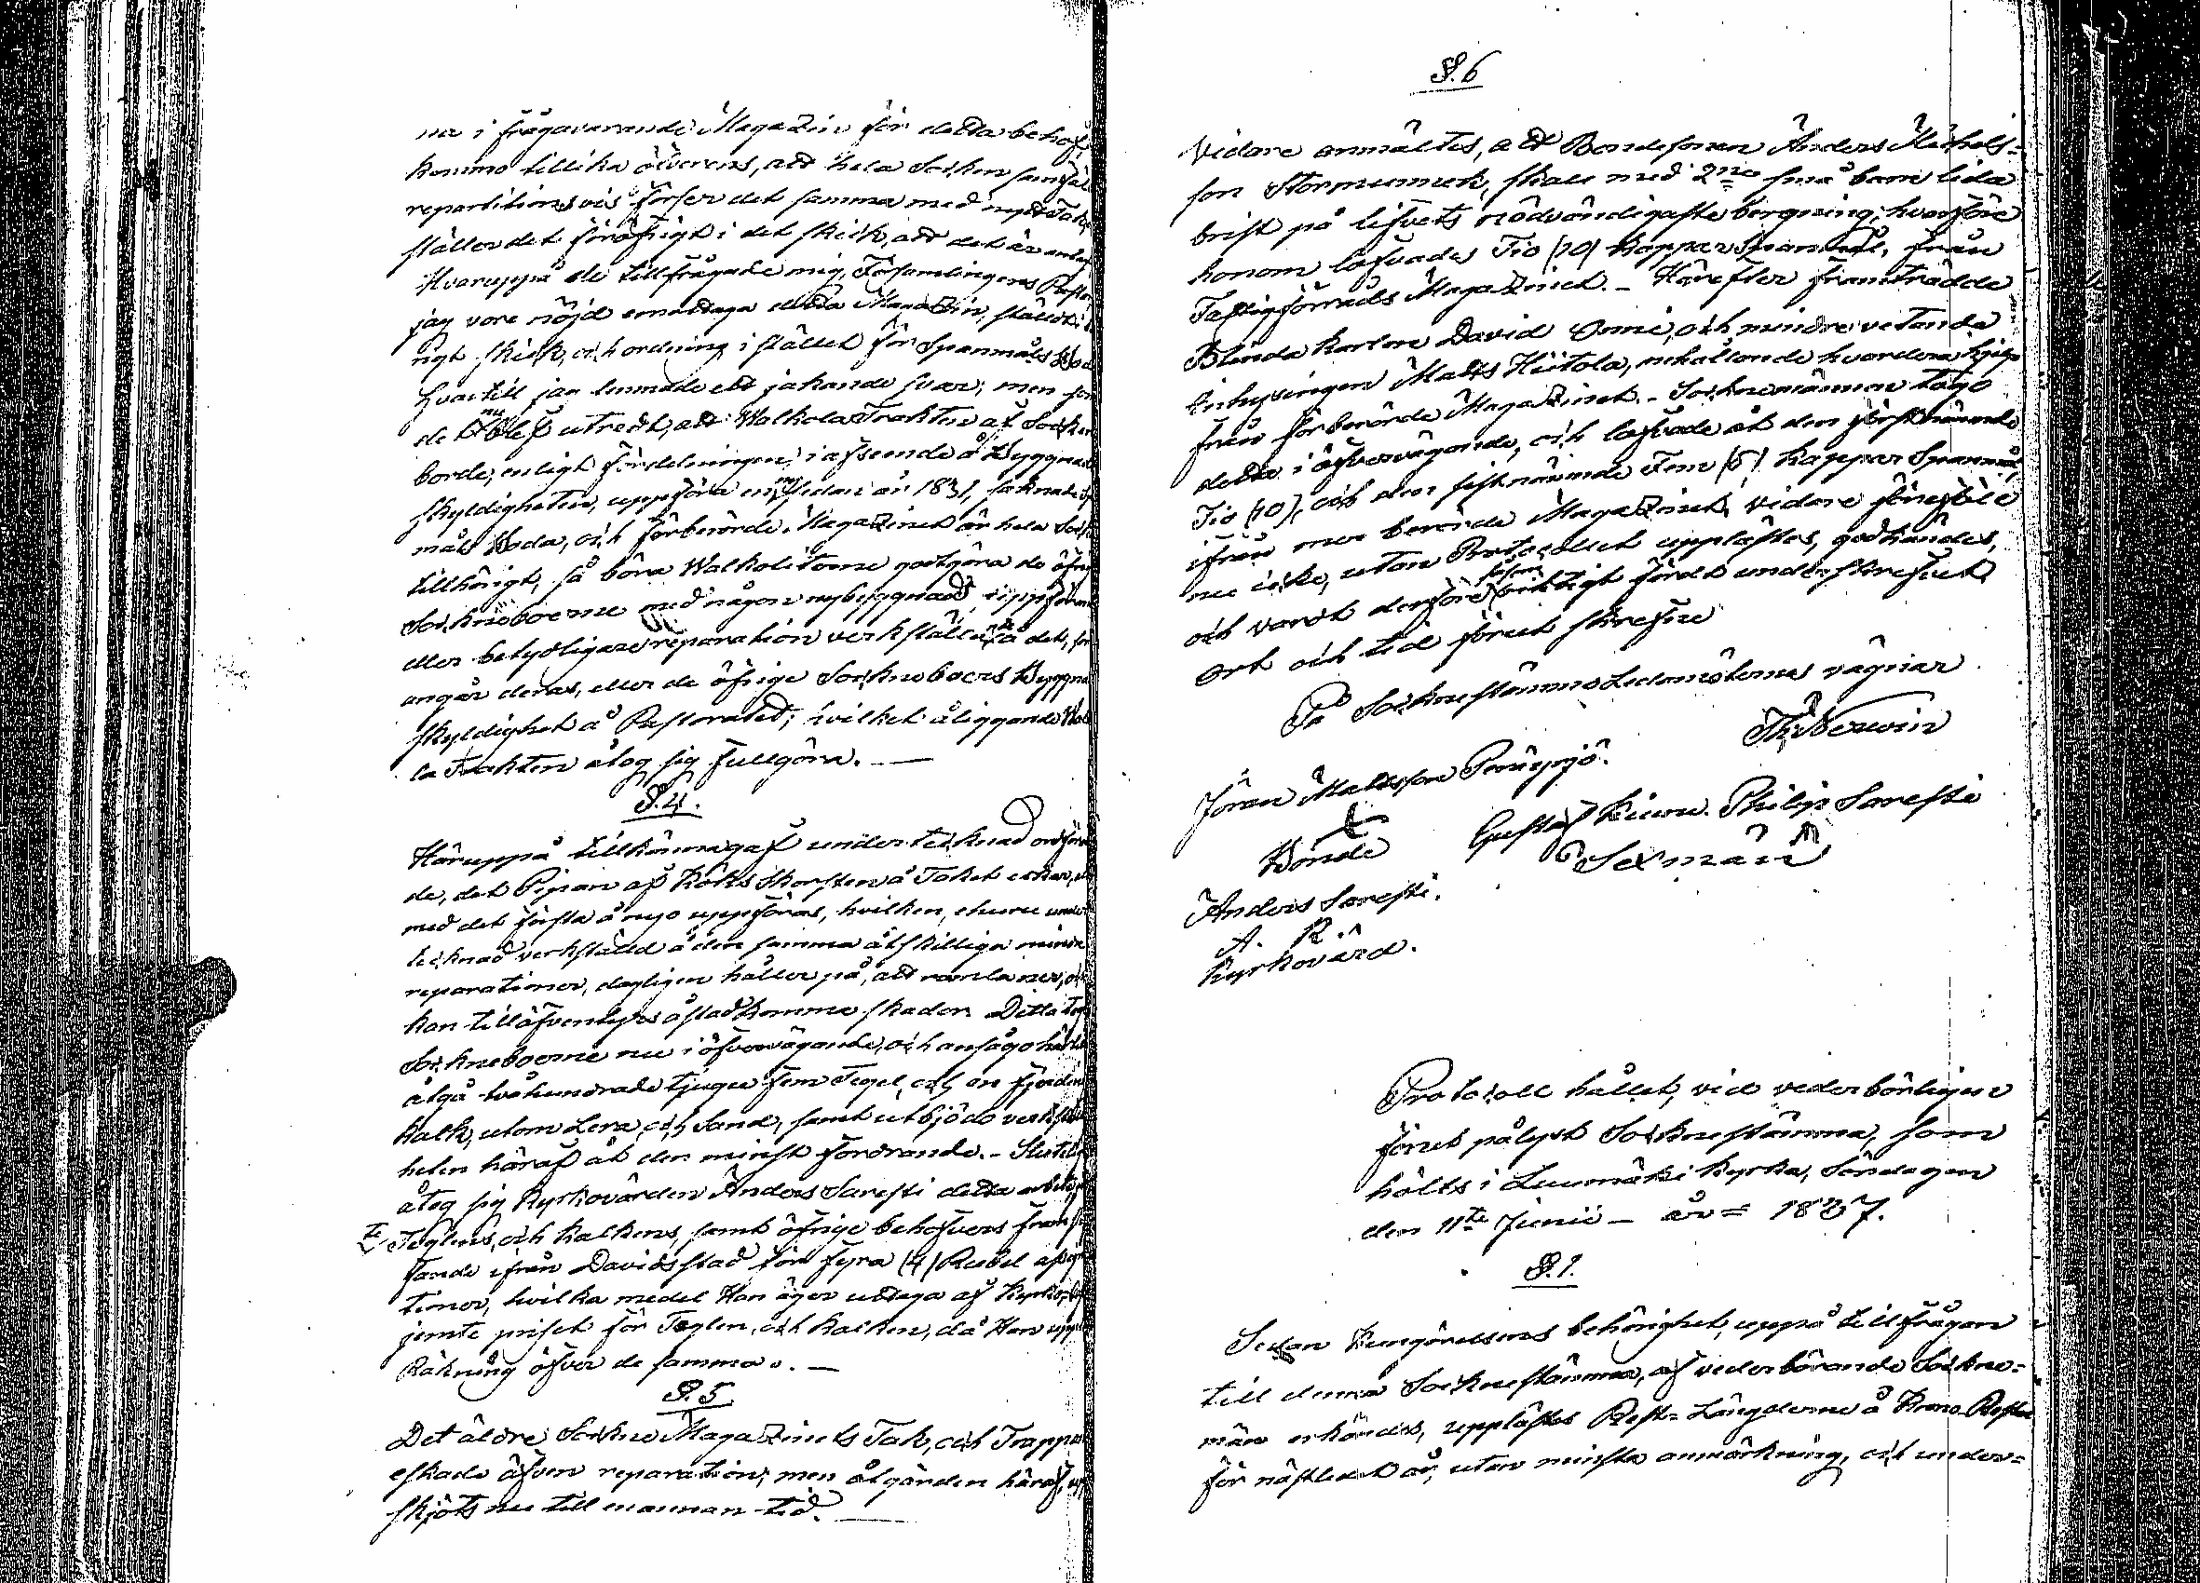 na i frågavarande Magazin för detta behof,
kommo tillika öfverens, att hela Socken samfäl
repartitionsvis förser det samma med nytt Tak,
ställer det föröfrigt i det skick, att det är
Hvaruppå de tillfrågade mig, Församlingens
jag vore nöjd emottaga detta Magazin, ställdt i
rigt skick, och ordning i stället för Spanmåls Bod
hvartill jag lemnade ett jakande svar; men som
det nu blef utredt, att Walkola Trakten af Socken
borde, enligt fördelningen, i afseende å Byggnads
skyldigheten, uppföra en ny, sedan år 1831, saknad
måls Boda, och förberörde Magazinet är hela Sock
tillhörigt, så böra Walkolitorne godtgöra de öfri
Sockneboerne med någon nybyggnad uppföran
eller betydligare reparation verkställa, så det, som
angår deras, eller de öfrige Sockneboers Byggna
skyldighet å Pastoratet; hvilket åliggande Wal
la Trakten åtog sig fullgöra. —
§. 4.
Häruppå tillkännagaf undertecknad ordföran
de, det Pipan af Köks Skorsten å Taket
med det första å nyo uppföras, hvilken, ehuru under
tecknad verkställd å den samma åtskilliga mindre
reparationer, dagligen håller på, att ramla ner, och
kan tilläfventyrs åstadkomma skada. Detta togo
Sockneboerne nu i öfvervägande, och ansågo härtil
åtgå tvåhundrade tjugu fem Tegel, och en fjerding
kalk, utom Lera, och Sand, samt utbjödo verkstäl
heten häraf åt den minst fordrande. - Slutel
åtog sig Kyrkovärden Anders Saresti detta arbete,
Teglens, och Kalkens, samt öfrige behofvers fram
fande ifrån Davidsstad för fyra (4) Rubel
hvilka medel Han äger uttaga af Kyrko
jemte priset för Teglen, och Kalken, då Han upp
Räkning öfver de samma. —
§. 5
Det äldre Sockne Magazinets Tak, och Trappa
eskade äfven reparation; men åtgärden häraf,
skjöts nu till annan tid.
§. 6
Vidare anmältes, att Bondesonen Anders Michels-
son Stormumuk, skall med 2ne små barn lida
brist på lifvets nödvändigaste bergning; hvarföre
honom lofvades Tio (10) Kappar Spanmål, från
Fattigförråds Magazinet. - Härefter framträdde
Blinda karlen David Onni, och mindre vetande
Inhysingen Matts Hietola, anhållande hvardera hjelp
från förberörde Magazinet. - Socknemännen togo
detta i öfvervägande, och lofvade åt den förstnämnde
Tio (10), och den sistnämnde Fem (5) Kappar Spanmål
ifrån mer berörde Magazinet. Vidare föreföll
nu icke, utan Protocollet upplästes, godkändes,
och vardt derföre såsom riktigt fördt underskrefvet
Ort och tid förut skrefne
På Sockenstämmo Ledamöternes vägnar.
Th: Nerwin
Jöran Mattsson
Bonde
Gustaf Kiuru. Philip Saresti
Sexmän
Anders Saresti.
A. R.
Kyrkovärd.
Protocoll hållet, vid vederbörligen
förut pålyst Socknestämma, som
hölts i Luumäki Kyrka, Söndagen
den 11te Junii — år = 1837.
§. 1.
Sedan Kungörelsens behörighet, uppå tillfrågan
till denna Socknestämma, af vederbörande Sockne-
män erkändes, upplästes Rest-Längderne å Krono Rester
för nästledit år, utan minsta anmärkning, och under-